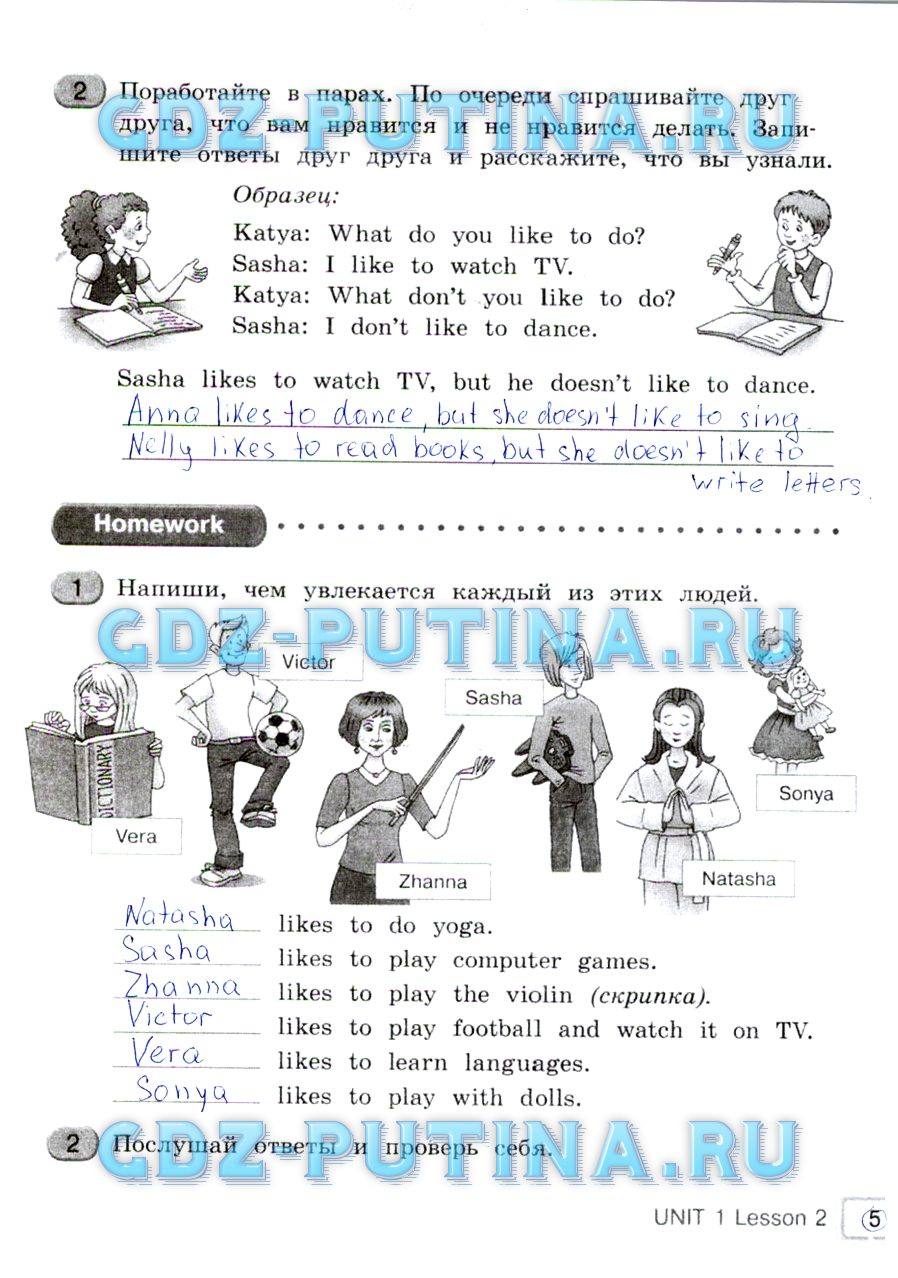 2 Поработайте в парах. По очереди спрашивайте друг
друга, что вам нравится и не нравится делать. Запи-
шите ответы друг друга и расскажите, что вы узнали.
GDZ-PUTINA.RU
Образец:
Katya: What do you like to do?
Sasha: I like to watch TV.
Katya: What don't you like to do?
Sasha: I don't like to dance.
Sasha likes to watch TV, but he doesn't like to dance.
Anna likes to dance, but she doesn't like to sing.
Nelly likes to read books, but she doesn't like to
write letters.
Homework
1 Напиши, чем увлекается каждый из этих людей.
GDZ-PUTINA.RU
Victor
Sasha
DICTIONARY
Sonya
Vera
Zhanna
Natasha
Natasha likes to do yoga.
Sasha likes to play computer games.
Zhanna likes to play the violin (скрипка).
Victor likes to play football and watch it on TV.
Vera likes to learn languages.
Sonya likes to play with dolls.
2 Послушай ответы и проверь себя.
GDZ-PUTINA.RU
UNIT 1 Lesson 2 5